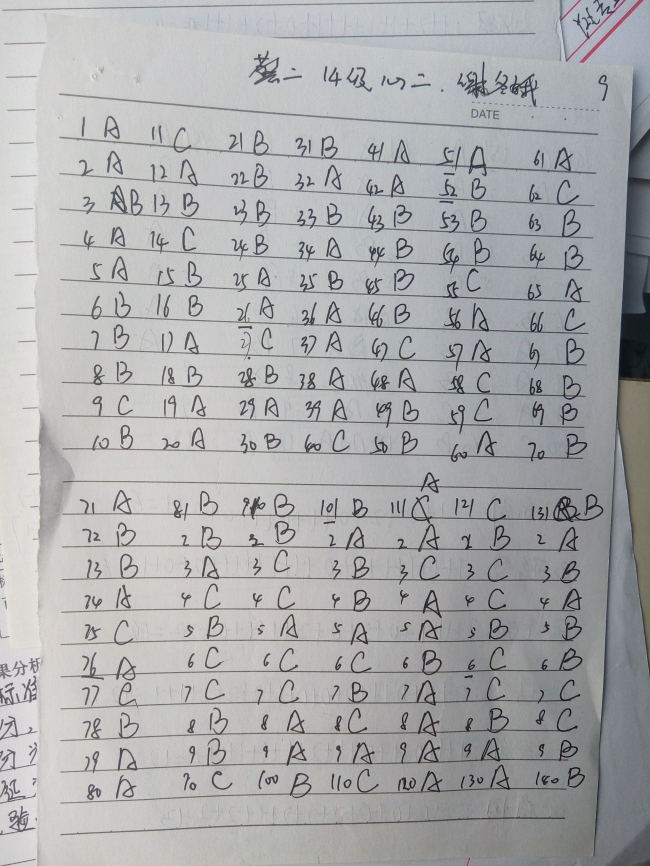 14级心二. 9
DATE
1 A 11 C 21 B 31 B 41 A 51 A 61 A
2 A 12 A 22 B 32 A 42 A 52 B 62 C
3 B 13 B 23 B 33 B 43 B 53 B 63 B
4 A 14 C 24 B 34 A 44 B 54 B 64 B
5 A 15 B 25 A 35 B 45 B 55 C 65 A
6 B 16 B 26 A 36 A 46 B 56 A 66 C
7 B 17 A 27 C 37 A 47 C 57 A 67 B
8 B 18 B 28 B 38 A 48 A 58 C 68 B
9 C 19 A 29 A 39 A 49 B 59 C 69 B
10 B 20 A 30 B 40 C 50 B 60 A 70 B
A
71 A 81 B 91 B 101 B 111 C 121 C 131 B
72 B 2 B 2 B 2 A 2 A 2 B 2 A
73 B 3 A 3 C 3 B 3 C 3 C 3 B
74 A 4 C 4 C 4 B 4 A 4 C 4 A
75 C 5 B 5 A 5 A 5 A 5 B 5 B
76 A 6 C 6 C 6 C 6 B 6 C 6 B
77 C 7 C 7 C 7 B 7 A 7 C 7 C
78 B 8 B 8 A 8 C 8 A 8 B 8 C
79 A 9 B 9 A 9 A 9 A 9 A 9 B
80 A 90 C 100 B 110 C 120 A 130 A 140 B
果分析
标准